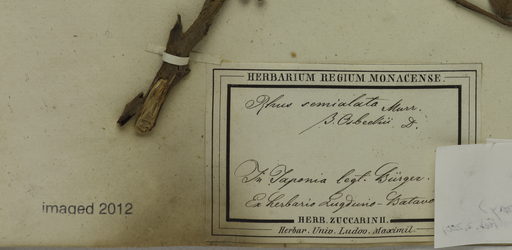 HERBARIUM REGIUM MONACENSE.
Rhus semialata Murr.
β. Osbeckii D.
In Japonia legt. Bürger.
Ex herbario Lugduno-Batavo
HERB. ZUCCARINII.
Herbar. Univ. Ludov. Maximil.
imaged 2012